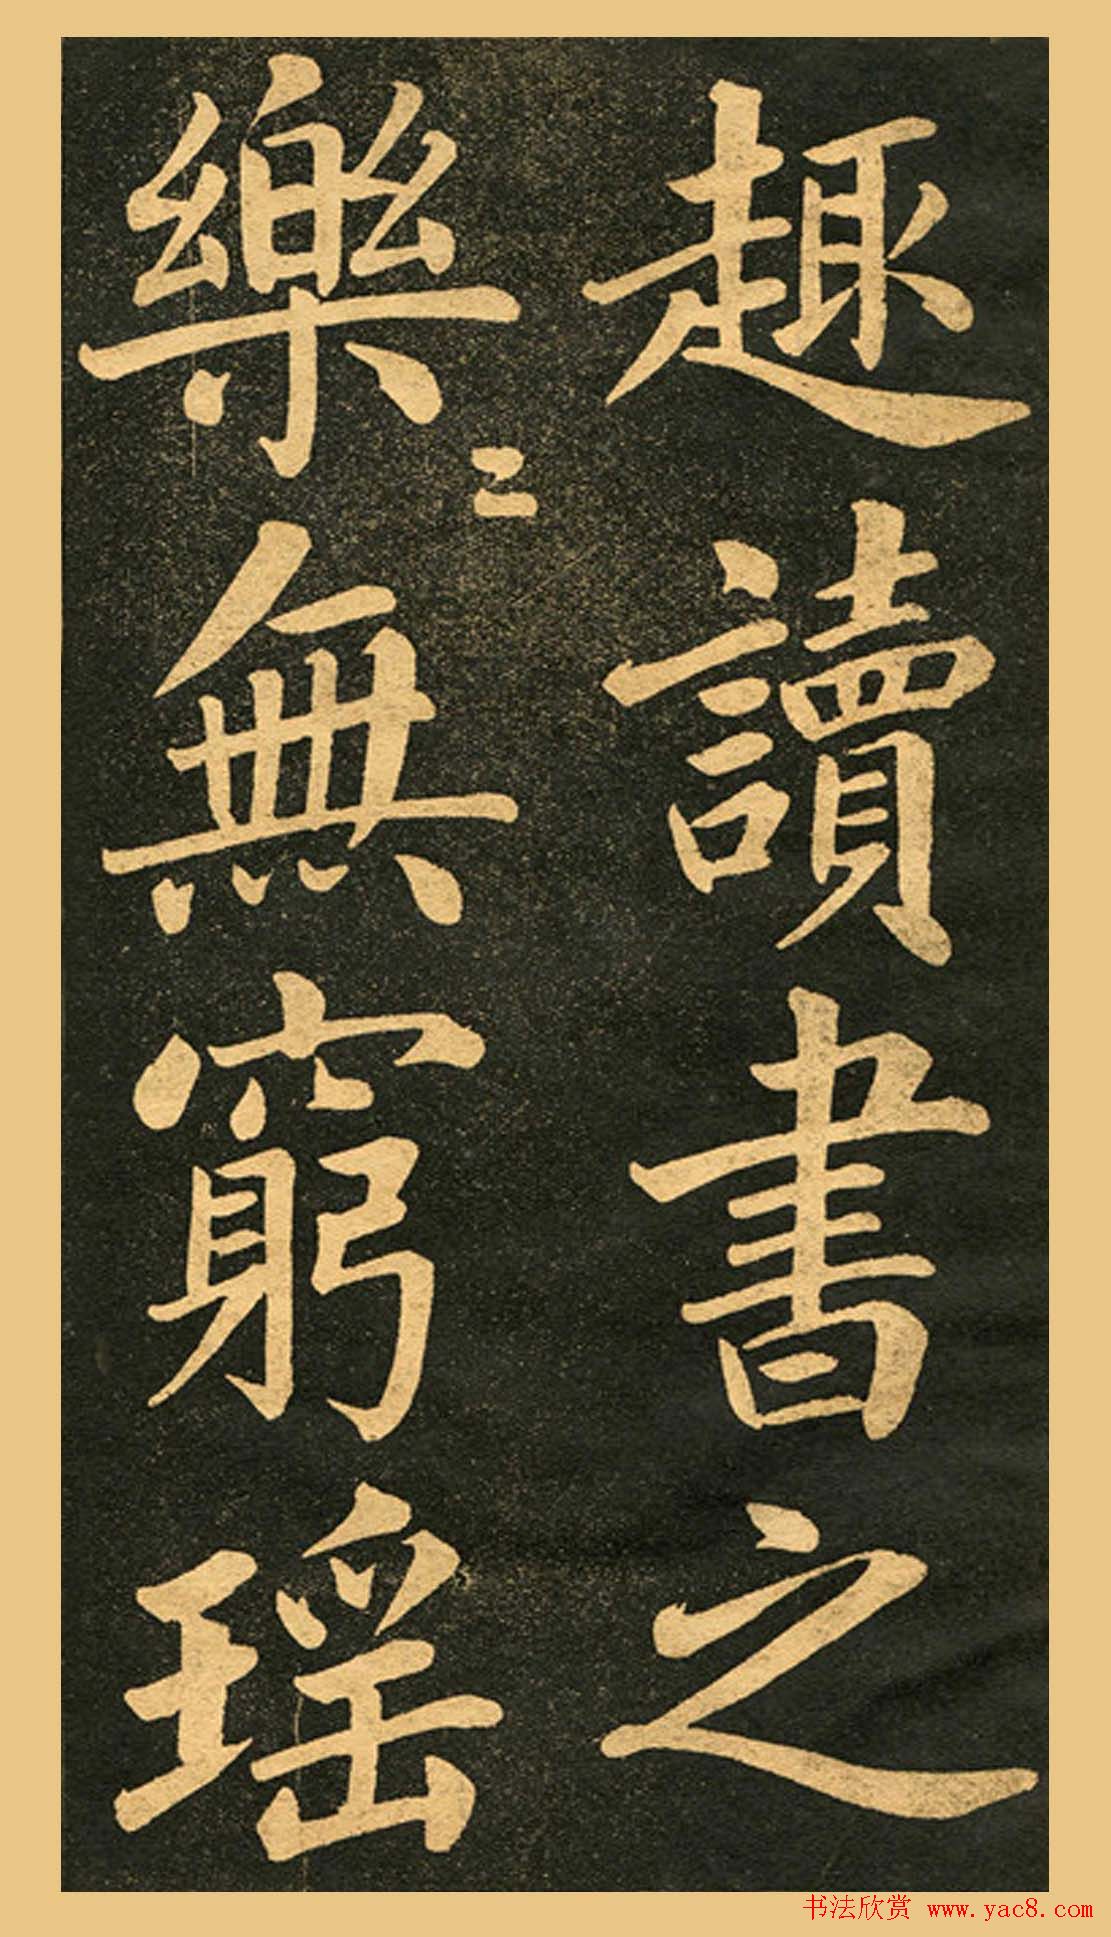 趣讀書之
樂＝無窮瑶
书法欣赏 www.yac8.com